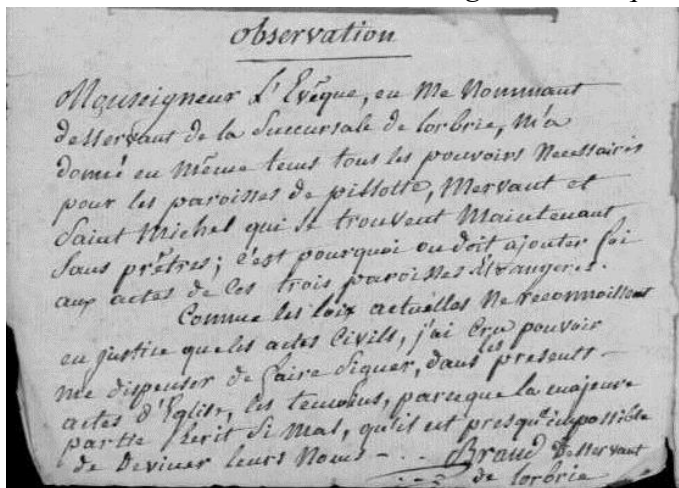 observation
Monseigneur L'Evêque, en me Nommant
desservant de la Succursale de lorbrie, m'a
donné en même tems tous les pouvoirs Necessaires
pour les paroisses de pissotte, Mervant et
Saint Michel qui se trouvent Maintenant
Sans prêtres; c'est pourquoi on doit ajouter foi
aux actes de ces trois paroisses Etrangeres.
Comme les loix actuelles Ne reconnoissent
en justice que les actes Civils, j'ai Cru pouvoir
me dispenser de faire signer, dans les presents
actes d'Eglise, les temoins, parceque la majeure
partie Ecrit si mal, qu'il est presqu'impossible
de deviner leurs Noms - . . Braud desservant
de lorbrie